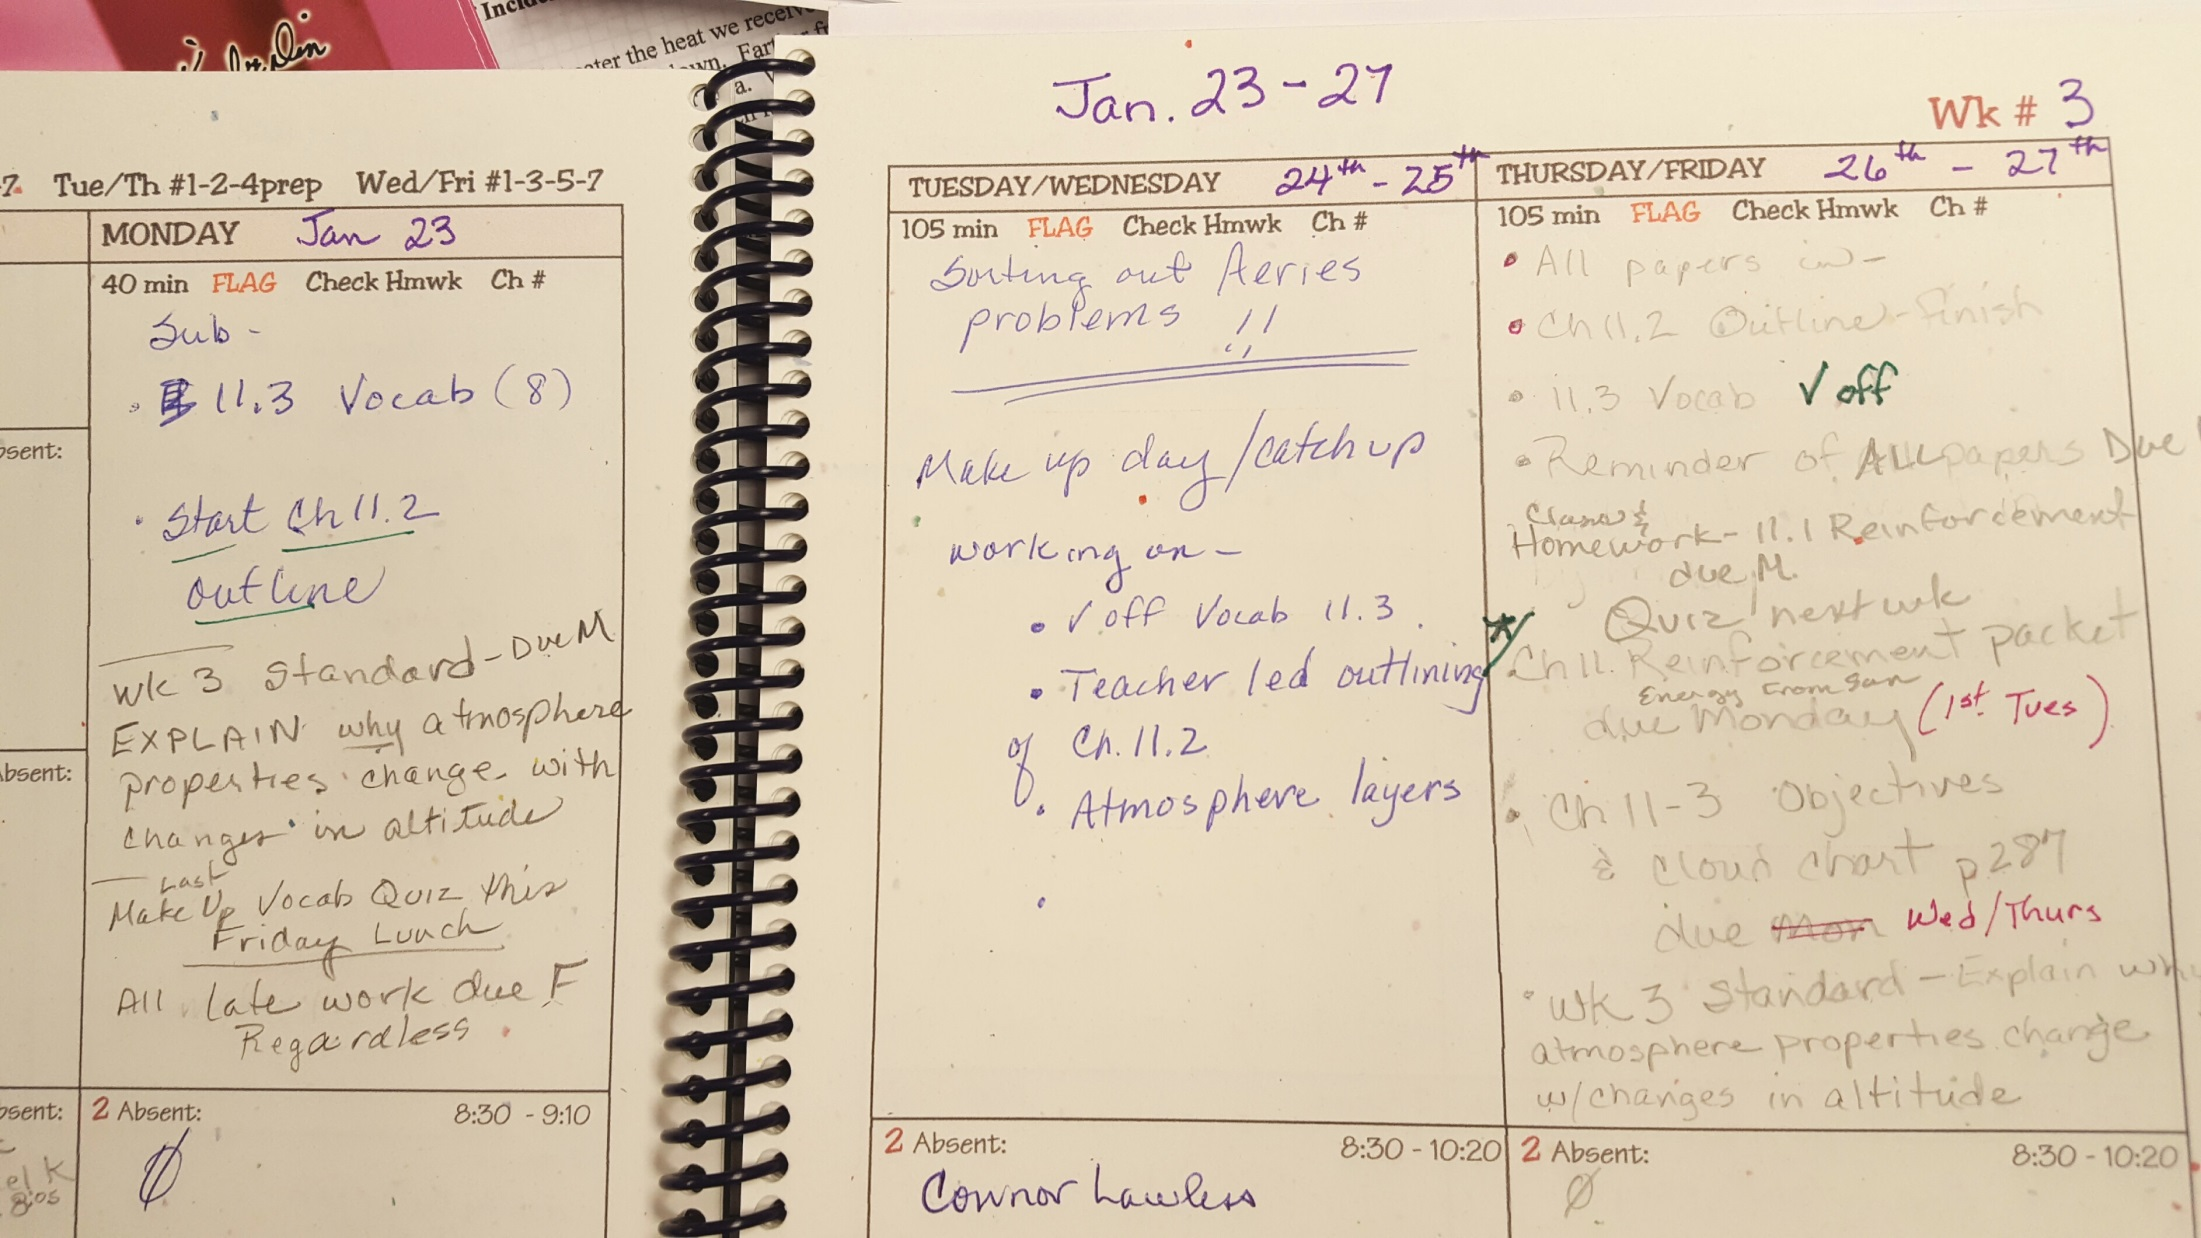 ater the heat we receiv
own. Fart
a.
Jan. 23-27
Wk # 3
7. Tue/Th #1-2-4prep Wed/Fri #1-3-5-7
MONDAY Jan 23
40 min FLAG Check Hmwk Ch #
Sub -
• 11.3 Vocab (8)
• Start Ch 11.2
outline
Wk 3 Standard - Due M
EXPLAIN why atmosphere
properties change with
changes in altitude
Last
Make Up Vocab Quiz this
Friday Lunch
All late work due F
Regardless
2 Absent: 8:30 - 9:10
Ø
bsent:
Absent:
osent:
el K
8:05
TUESDAY/WEDNESDAY 24th - 25th
105 min FLAG Check Hmwk Ch #
Sorting out Aeries
problems !!
Make up day/catch up
working on -
• ✓ off Vocab 11.3
• Teacher led outlining
of Ch. 11.2
• Atmosphere layers
•
2 Absent: 8:30 - 10:20
Connor Lawless
THURSDAY/FRIDAY 26th - 27th
105 min FLAG Check Hmwk Ch #
• All papers in -
• Ch 11.2 Outline - finish
• 11.3 Vocab ✓ off
• Reminder of ALL papers Due
Class &
Homework - 11.1 Reinforcement
due M.
Quiz next wk
• Ch 11. Reinforcement packet
Energy From Sun
due Monday (1st Tues)
• Ch 11-3 Objectives
& Cloud chart p287
due Mon Wed/Thurs
• Wk 3 Standard - Explain why
atmosphere properties change
w/changes in altitude
2 Absent: 8:30 - 10:20
Ø